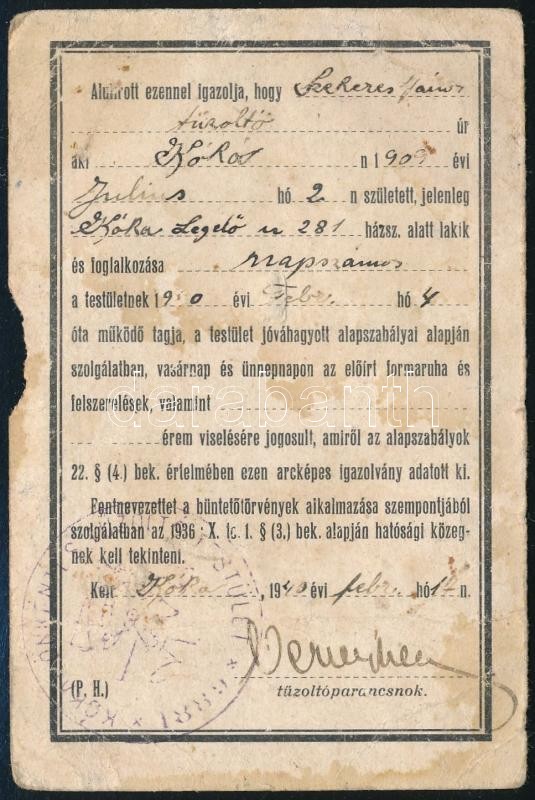 Alulírott ezennel igazolja, hogy Szekeres János
tűzoltó úr
aki Kókás n 1909 évi
Julius hó 2 n született, jelenleg
Kóka Legelő u 281 házsz. alatt lakik
és foglalkozása napszámos
a testületnek 19 0 évi Febr. hó 4
óta működő tagja, a testület jóváhagyott alapszabályai alapján
szolgálatban, vasárnap és ünnepnapon az előírt formaruha és
felszerelések, valamint
érem viselésére jogosult, amiről az alapszabályok
22. § (4.) bek. értelmében ezen arcképes igazolvány adatott ki.
Fentnevezettet a büntetőtörvények alkalmazása szempontjából
szolgálatban az 1936. X. tc. 1. § (3.) bek. alapján hatósági közeg-
nek kell tekinteni.
Kelt Kóka, 1940 évi febr. hó 14 n.
(P. H.)
tűzoltóparancsnok.
darabanth